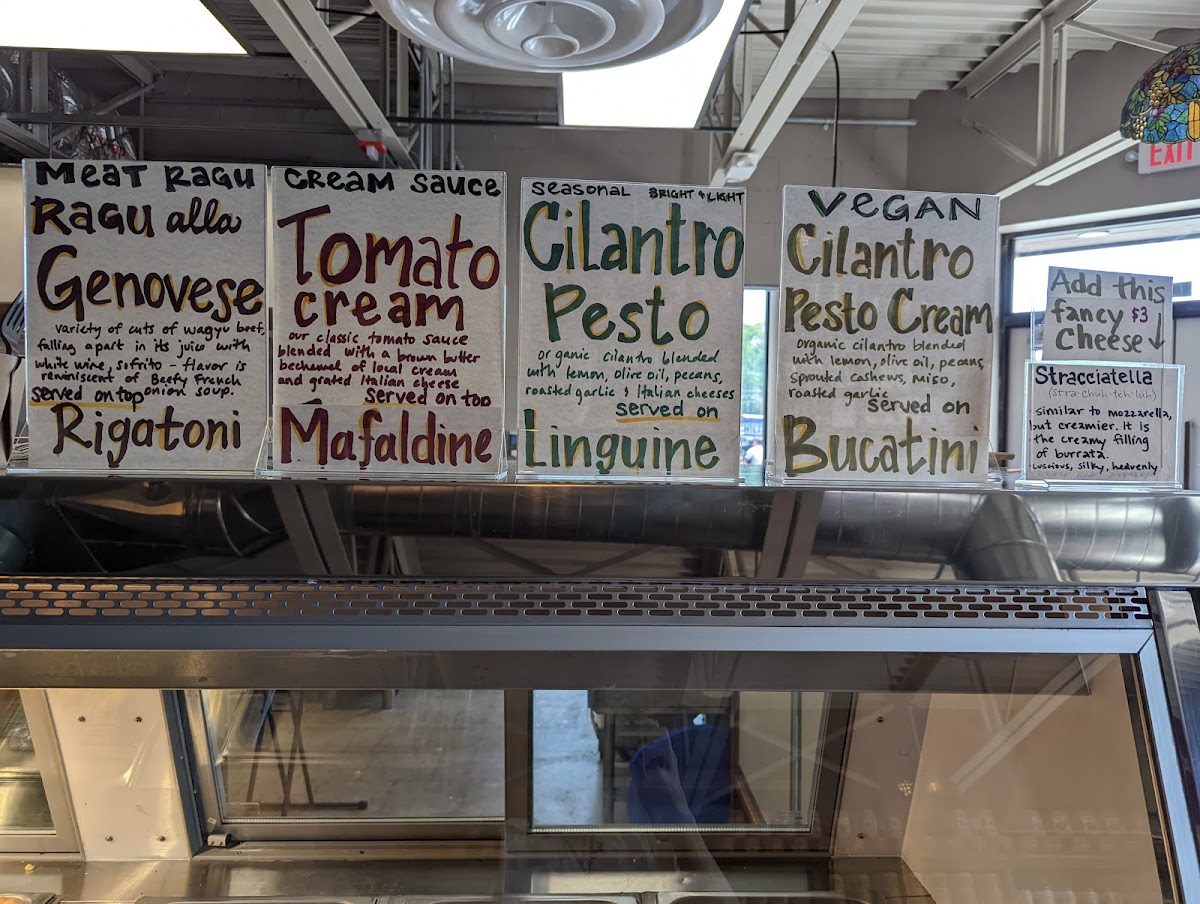 MEAT RAGU
RAGU alla
Genovese
variety of cuts of wagyu beef,
falling apart in its juice with
white wine, sofrito - flavor is
reminiscent of Beefy French
onion soup.
served on top
Rigatoni
CREAM SAUCE
Tomato
cream
our classic tomato sauce
blended with a brown butter
bechemel of local cream
and grated Italian cheese
Served on top
Mafaldine
SEASONAL BRIGHT & LIGHT
Cilantro
Pesto
organic cilantro blended
with lemon, olive oil, pecans,
roasted garlic & Italian cheeses
served on
Linguine
VEGAN
Cilantro
Pesto Cream
organic cilantro blended
with lemon, olive oil, pecans,
sprouted cashews, miso,
roasted garlic
Served on
Bucatini
Add this
fancy $3
Cheese ↓
Stracciatella
(stra·chuh·teh·luh)
similar to mozzarella,
but creamier. It is
the creamy filling
of burrata.
Luscious, silky, heavenly
EXIT